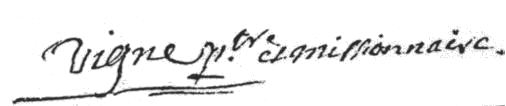 Vigne p.tre et missionnaire.